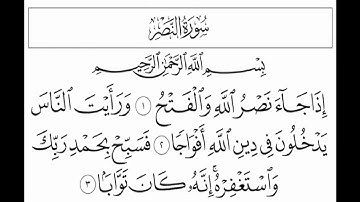 سُورَةُ النَّصْرِ
بِسْمِ اللَّهِ الرَّحْمَٰنِ الرَّحِيمِ
إِذَا جَآءَ نَصْرُ ٱللَّهِ وَٱلْفَتْحُ ١ وَرَأَيْتَ ٱلنَّاسَ
يَدْخُلُونَ فِى دِينِ ٱللَّهِ أَفْوَاجًا ٢ فَسَبِّحْ بِحَمْدِ رَبِّكَ
وَٱسْتَغْفِرْهُ ۚ إِنَّهُۥ كَانَ تَوَّابًۢا ٣